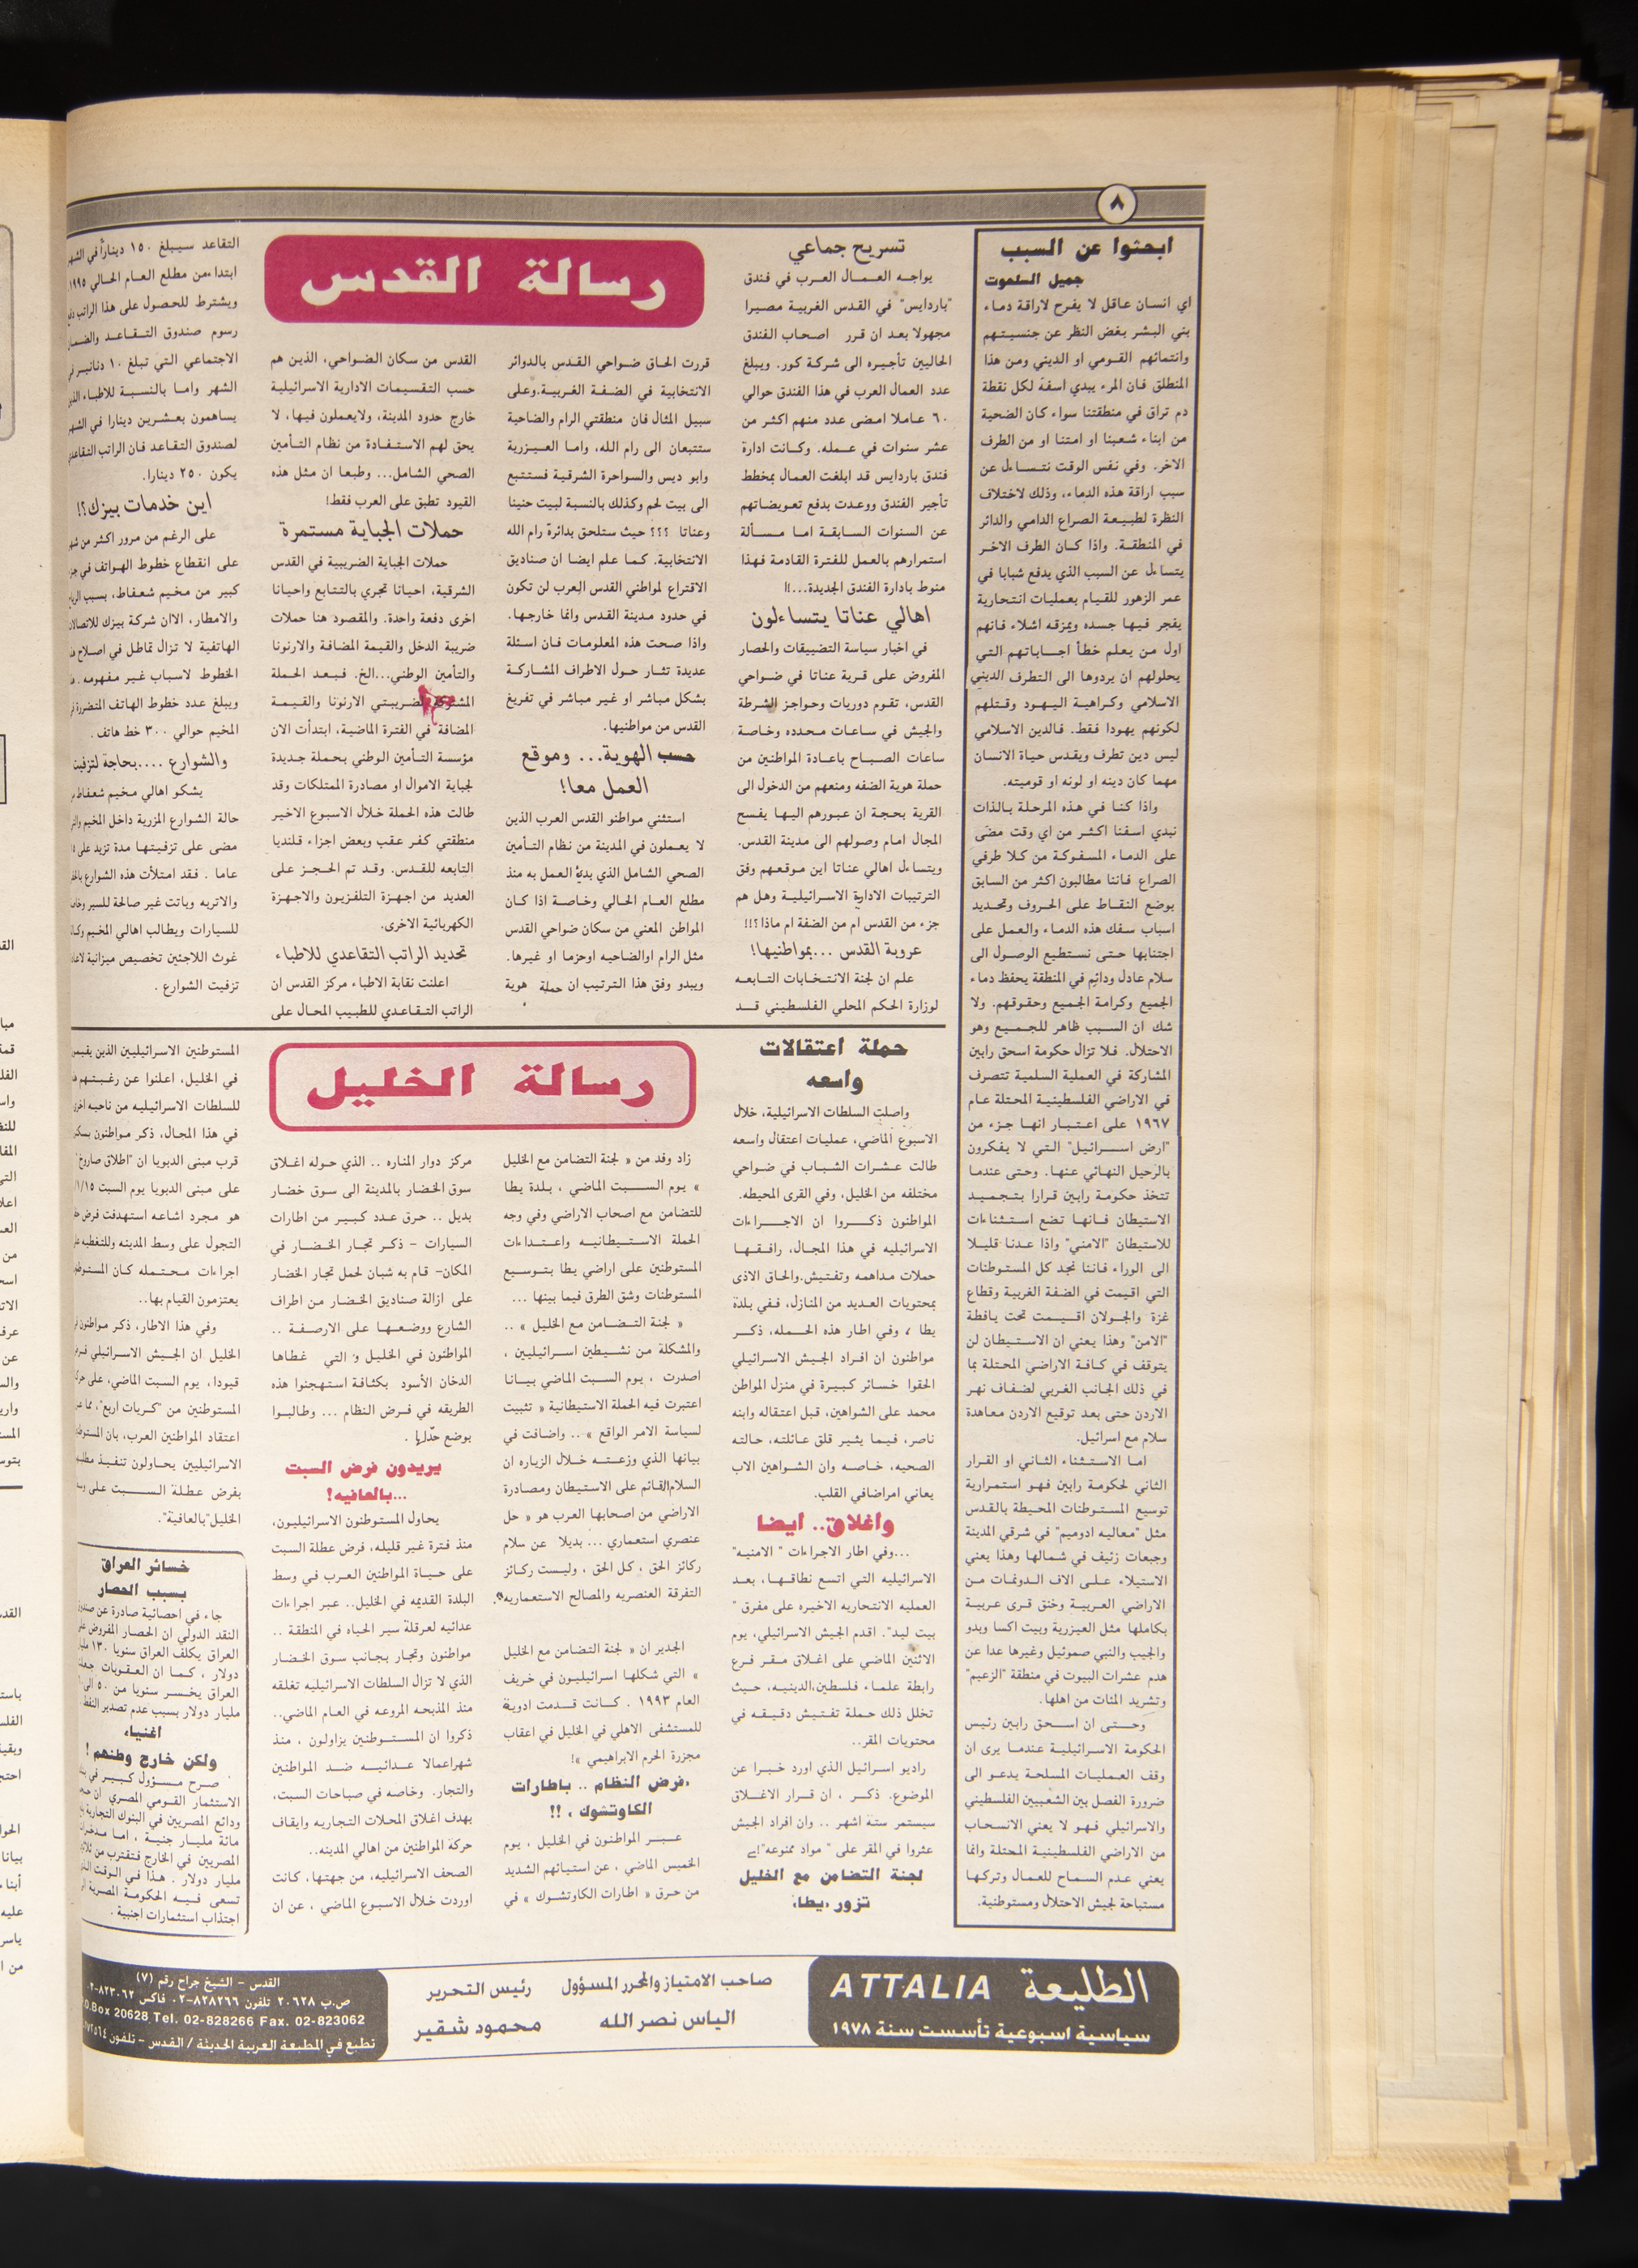 ٨
ابحثوا عن السبب
جميل السلحوت
اي انسان عاقل لا يفرح لاراقة دماء
بني البشر بغض النظر عن جنسيتهم
وانتمائهم القومي او الديني ومن هذا
المنطلق فان المرء يبدي اسفه لكل نقطة
دم تراق في منطقتنا سواء كان الضحية
من ابناء شعبنا او امتنا او من الطرف
الاخر. وفي نفس الوقت نتساءل عن
سبب اراقة هذه الدماء، وذلك لاختلاف
النظرة لطبيعة الصراع الدامي والدائر
في المنطقة. واذا كان الطرف الاخر
يتساءل عن السبب الذي يدفع شبابا في
عمر الزهور للقيام بعمليات انتحارية
يفجر فيها جسده ويمزقه اشلاء فانهم
اول من يعلم خطأ اجاباتهم التي
يحلولهم ان يردوها الى التطرف الديني
الاسلامي وكراهية اليهود وقتلهم
لكونهم يهودا فقط. فالدين الاسلامي
ليس دين تطرف ويقدس حياة الانسان
مهما كان دينه او لونه او قوميته.
واذا كنا في هذه المرحلة بالذات
نبدي اسفنا اكثر من اي وقت مضى
على الدماء المسفوكة من كلا طرفي
الصراع فاننا مطالبون اكثر من السابق
بوضع النقاط على الحروف وتحديد
اسباب سفك هذه الدماء والعمل على
اجتنابها حتى نستطيع الوصول الى
سلام عادل ودائم في المنطقة يحفظ دماء
الجميع وكرامة الجميع وحقوقهم. ولا
شك ان السبب ظاهر للجميع وهو
الاحتلال. فلا تزال حكومة اسحق رابين
المشاركة في العملية السلمية تتصرف
في الاراضي الفلسطينية المحتلة عام
١٩٦٧ على اعتبار انها جزء من
"ارض اسرائيل" التي لا يفكرون
بالرحيل النهائي عنها. وحتى عندما
تتخذ حكومة رابين قرارا بتجميد
الاستيطان فانها تضع استثناءات
للاستيطان "الامني" واذا عدنا قليلا
الى الوراء فاننا نجد كل المستوطنات
التي اقيمت في الضفة الغربية وقطاع
غزة والجولان اقيمت تحت يافطة
"الامن" وهذا يعني ان الاستيطان لن
يتوقف في كافة الاراضي المحتلة بما
في ذلك الجانب الغربي لضفاف نهر
الاردن حتى بعد توقيع الاردن معاهدة
سلام مع اسرائيل.
اما الاستثناء الثاني او القرار
الثاني لحكومة رابين فهو استمرارية
توسيع المستوطنات المحيطة بالقدس
مثل "معاليه ادوميم" في شرقي المدينة
وجبعات زئيف في شمالها وهذا يعني
الاستيلاء على الاف الدونمات من
الاراضي العربية وخنق قرى عربية
بكاملها مثل العيزرية وبيت اكسا وبدو
والجيب والنبي صموئيل وغيرها عدا عن
هدم عشرات البيوت في منطقة "الزعيم"
وتشريد المئات من اهلها.
وحتى ان اسحق رابين رئيس
الحكومة الاسرائيلية عندما يرى ان
وقف العمليات المسلحة يدعو الى
ضرورة الفصل بين الشعبيين الفلسطيني
والاسرائيلي فهو لا يعني الانسحاب
من الاراضي الفلسطينية المحتلة وانما
يعني عدم السماح للعمال وتركها
مستباحة لجيش الاحتلال ومستوطنية.
رسالة القدس
تسريح جماعي
يواجه العمال العرب في فندق
"باردايس" في القدس الغربية مصيرا
مجهولا بعد ان قرر اصحاب الفندق
الحاليين تأجيره الى شركة كور. ويبلغ
عدد العمال العرب في هذا الفندق حوالي
٦٠ عاملا امضى عدد منهم اكثر من
عشر سنوات في عمله. وكانت ادارة
فندق باردايس قد ابلغت العمال بمخطط
تأجير الفندق ووعدت بدفع تعويضاتهم
عن السنوات السابقة اما مسألة
استمرارهم بالعمل للفترة القادمة فهذا
منوط بادارة الفندق الجديدة...!!
اهالي عناتا يتساءلون
في اخبار سياسة التضييقات والحصار
المفروض على قرية عناتا في ضواحي
القدس، تقوم دوريات وحواجز الشرطة
والجيش في ساعات محدده وخاصة
ساعات الصباح باعادة المواطنين من
حملة هوية الضفه ومنعهم من الدخول الى
القرية بحجة ان عبورهم اليها يفسح
المجال امام وصولهم الى مدينة القدس.
ويتساءل اهالي عناتا اين موقعهم وفق
الترتيبات الادارية الاسرائيلية وهل هم
جزء من القدس ام من الضفة ام ماذا؟!!
عروبة القدس ...بمواطنيها!
علم ان لجنة الانتخابات التابعه
لوزارة الحكم المحلي الفلسطيني قد
قررت الحاق ضواحي القدس بالدوائر
الانتخابية في الضفة الغربية.وعلى
سبيل المثال فان منطقتي الرام والضاحية
ستتبعان الى رام الله، واما العيزرية
وابو ديس والسواحرة الشرقية فستتبع
الى بيت لحم وكذلك بالنسبة لبيت حنينا
وعناتا ؟؟؟ حيث ستلحق بدائرة رام الله
الانتخابية. كما علم ايضا ان صناديق
الاقتراع لمواطني القدس العرب لن تكون
في حدود مدينة القدس وانما خارجها.
واذا صحت هذه المعلومات فان اسئلة
عديدة تثار حول الاطراف المشاركة
بشكل مباشر او غير مباشر في تفريغ
القدس من مواطنيها.
حسب الهوية... وموقع
العمل معا!
استثني مواطنو القدس العرب الذين
لا يعملون في المدينة من نظام التأمين
الصحي الشامل الذي بدئ العمل به منذ
مطلع العام الحالي وخاصة اذا كان
المواطن المعني من سكان ضواحي القدس
مثل الرام اوالضاحيه اوحزما او غيرها.
ويبدو وفق هذا الترتيب ان حملة هوية
القدس من سكان الضواحي، الذين هم
حسب التقسيمات الادارية الاسرائيلية
خارج حدود المدينة، ولايعملون فيها، لا
يحق لهم الاستفادة من نظام التأمين
الصحي الشامل... وطبعا ان مثل هذه
القيود تطبق على العرب فقط!
حملات الجباية مستمرة
حملات الجباية الضريبية في القدس
الشرقية، احيانا تجري بالتتابع واحيانا
اخرى دفعة واحدة. والمقصود هنا حملات
ضريبة الدخل والقيمة المضافة والارنونا
والتأمين الوطني...الخ. فبعد الحملة
المشتركة لضريبتي الارنونا والقيمة
المضافة في الفترة الماضية، ابتدأت الان
مؤسسة التأمين الوطني بحملة جديدة
لجباية الاموال او مصادرة الممتلكات وقد
طالت هذه الحملة خلال الاسبوع الاخير
منطقتي كفر عقب وبعض اجزاء قلنديا
التابعه للقدس. وقد تم الحجز على
العديد من اجهزة التلفزيون والاجهزة
الكهربائية الاخرى.
تحديد الراتب التقاعدي للاطباء
اعلنت نقابة الاطباء مركز القدس ان
الراتب التقاعدي للطبيب المحال على
التقاعد سيبلغ ١٥٠ ديناراً في الشهر
ابتداءمن مطلع العام الحالي ١٩٩٥
ويشترط للحصول على هذا الراتب
رسوم صندوق التقاعد والضمان
الاجتماعي التي تبلغ ١٠ دنانير في
الشهر واما بالنسبة للاطباء
يساهمون بعشرين دينارا في الشهر
لصندوق التقاعد فان الراتب التقاعدي
يكون ٢٥٠ دينارا.
اين خدمات بيزك؟!
على الرغم من مرور اكثر من
على انقطاع خطوط الهواتف في
كبير من مخيم شعفاط، بسبب
والامطار، الاان شركة بيزك
الهاتفية لا تزال تماطل في اصلاح
الخطوط لاسباب غير مفهومه.
ويبلغ عدد خطوط الهاتف المتضررة
المخيم حوالي ٣٠٠ خط هاتف .
والشوارع ....بحاجة لتزفيت
يشكو اهالي مخيم شعفاط
حالة الشوارع المزرية داخل المخيم
مضى على تزفيتها مدة تزيد على
عاما . فقد امتلأت هذه الشوارع
والاتربه وباتت غير صالحة للسير
للسيارات ويطالب اهالي المخيم
غوث اللاجئين تخصيص ميزانية
تزفيت الشوارع .
رسالة الخليل
حملة اعتقالات
واسعه
واصلت السلطات الاسرائيلية، خلال
الاسبوع الماضي، عمليات اعتقال واسعه
طالت عشرات الشباب في ضواحي
مختلفه من الخليل، وفي القرى المحيطه.
المواطنون ذكروا ان الاجراءات
الاسرائيليه في هذا المجال، رافقها
حملات مداهمه وتفتيش.والحاق الاذى
بمحتويات العديد من المنازل، ففي بلدة
يطا ، وفي اطار هذه الحمله، ذكر
مواطنون ان افراد الجيش الاسرائيلي
الحقوا خسائر كبيرة في منزل المواطن
محمد على الشواهين، قبل اعتقاله وابنه
ناصر، فيما يثير قلق عائلته، حالته
الصحيه، خاصه وان الشواهين الاب
يعاني امراضافي القلب.
واغلاق.. ايضا
...وفي اطار الاجراءات " الامنيه"
الاسرائيليه التي اتسع نطاقها، بعد
العمليه الانتحاريه الاخيره على مفرق "
بيت ليد". اقدم الجيش الاسرائيلي، يوم
الاثنين الماضي على اغلاق مقر فرع
رابطة علماء فلسطين،الدينيه، حيث
تخلل ذلك حملة تفتيش دقيقه في
محتويات المقر..
راديو اسرائيل الذي اورد خبرا عن
الموضوع. ذكر ، ان قرار الاغلاق
سيستمر ستة اشهر .. وان افراد الجيش
عثروا في المقر على " مواد ممنوعه"!ـ
لجنة التضامن مع الخليل
تزور «يطا»
زاد وفد من « لجنة التضامن مع الخليل
» يوم السبت الماضي ، بلدة يطا
للتضامن مع اصحاب الاراضي وفي وجه
الحملة الاستيطانيه واعتداءات
المستوطنين على اراضي يطا بتوسيع
المستوطنات وشق الطرق فيما بينها ...
« لجنة التضامن مع الخليل » ..
والمشكلة من نشيطين اسرائيليين ،
اصدرت ، يوم السبت الماضي بيانا
اعتبرت فيه الحملة الاستيطانية « تثبيت
لسياسة الامر الواقع » .. واضافت في
بيانها الذي وزعته خلال الزياره ان
السلام القائم على الاستيطان ومصادرة
الاراضي من اصحابها العرب هو « حل
عنصري استعماري ... بديلا عن سلام
ركائز الحق ، كل الحق ، وليست ركائز
التفرقة العنصريه والمصالح الاستعماريه».
الجدير ان « لجنة التضامن مع الخليل
» التي شكلها اسرائيليون في خريف
العام ١٩٩٣ . كانت قدمت ادوية
للمستشفى الاهلي في الخليل في اعقاب
مجزرة الحرم الابراهيمي »!
«فرض النظام .. باطارات
الكاوتشوك » !!
عبر المواطنون في الخليل ، يوم
الخميس الماضي ، عن استيائهم الشديد
من حرق « اطارات الكاوتشوك » في
مركز دوار المناره .. الذي حوله اغلاق
سوق الخضار بالمدينة الى سوق خضار
بديل .. حرق عدد كبير من اطارات
السيارات - ذكر تجار الخضار في
المكان- قام به شبان لحمل تجار الخضار
على ازالة صناديق الخضار من اطراف
الشارع ووضعها على الارصفة ..
المواطنون في الخليل و التي غطاها
الدخان الأسود بكثافة استهجنوا هذه
الطريقه في فرض النظام ... وطالبوا
بوضع حدّلها .
يريدون فرض السبت
...بالعافيه!
يحاول المستوطنون الاسرائيليون،
منذ فترة غير قليله، فرض عطلة السبت
على حياة المواطنين العرب في وسط
البلدة القديمه في الخليل.. عبر اجراءات
عدائيه لعرقلة سير الحياه في المنطقة ..
مواطنون وتجار بجانب سوق الخضار
الذي لا تزال السلطات الاسرائيليه تغلقه
منذ المذبحه المروعه في العام الماضي..
ذكروا ان المستوطنين يزاولون ، منذ
شهراعمالا عدائيه ضد المواطنين
والتجار. وخاصه في صباحات السبت،
بهدف اغلاق المحلات التجاريه وايقاف
حركة المواطنين من اهالي المدينه..
الصحف الاسرائيليه، من جهتها، كانت
اوردت خلال الاسبوع الماضي ، عن ان
المستوطنين الاسرائيليين الذين
في الخليل، اعلنوا عن رغبتهم
للسلطات الاسرائيليه من ناحيه اخرى
في هذا المجال، ذكر مواطنون
قرب مبنى الدبويا ان "اطلاق صاروخ"
على مبنى الدبويا يوم السبت ١/١٥/
هو مجرد اشاعه استهدفت فرض
التجول على وسط المدينه وللتغطيه
اجراءات محتمله كان
يعتزمون القيام بها..
وفي هذا الاطار، ذكر مواطنون
الخليل ان الجيش الاسرائيلي
قيودا، يوم السبت الماضي، على
المستوطنين من "كريات اربع"،
اعتقاد المواطنين العرب، بان
الاسرائيليين يحاولون تنفيذ
بفرض عطلة السبت على
الخليل"بالعافية".
خسائر العراق
بسبب الحصار
جاء في احصائية صادرة عن
النقد الدولي ان الحصار المفروض
العراق يكلف العراق سنويا ١٣٠
دولار ، كما ان العقوبات
العراق يخسر سنويا من ٥٠ الى
مليار دولار بسبب عدم تصدير النفط
اغنياء
ولكن خارج وطنهم !
صرح مسؤول كبير في
الاستثمار القومي المصري ان
ودائع المصريين في البنوك التجارية
مائة مليار جنيه ، اما
المصريين في الخارج فتقترب من
مليار دولار . هذا في الوقت
تسعى فيه الحكومة المصرية
اجتذاب استثمارات اجنبية .
الطليعة ATTALIA
سياسية اسبوعية تأسست سنة ١٩٧٨
صاحب الامتياز والمحرر المسؤول
الياس نصر الله
رئيس التحرير
محمود شقير
القدس - الشيخ جراح رقم (٧)
ص.ب ٢٠٦٢٨ تلفون ٨٢٨٢٦٦-٠٢ فاكس ٨٢٣٠٦٢-٠٢
.O.Box 20628 Tel. 02-828266 Fax. 02-823062
تطبع في المطبعة العربية الحديثة / القدس - تلفون